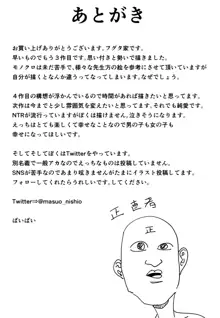 あとがき
お買い上げありがとうございます。フグタ家です。
早いものでもう３作目です。思い付きと勢いで描きました。
モノクロは未だ苦手で、様々な先生方の絵を参考にさせて頂いていますが
自分が描くとなんか違うってなってしまいます。なぜでしょう。
４作目の構想が浮かんでいるので時間があれば描きたいと思ってます。
次作は今までと少し雰囲気を変えたいと思ってます。それでも純愛です。
NTRが流行っていますがぼくは描けません。泣きそうになります。
えっちはとても美しくて幸せなことなので男の子も女の子も
幸せになってほしいです。
そしてそしてぼくはTwitterをやっています。
別名義で一般アカなのでえっちなものは投稿していません。
SNSが苦手なのであまり呟きませんがたまにイラスト投稿してます。
フォローしてくれたらうれしいです。してください。
Twitter⇒@masuo_nishio
ばいばい
正